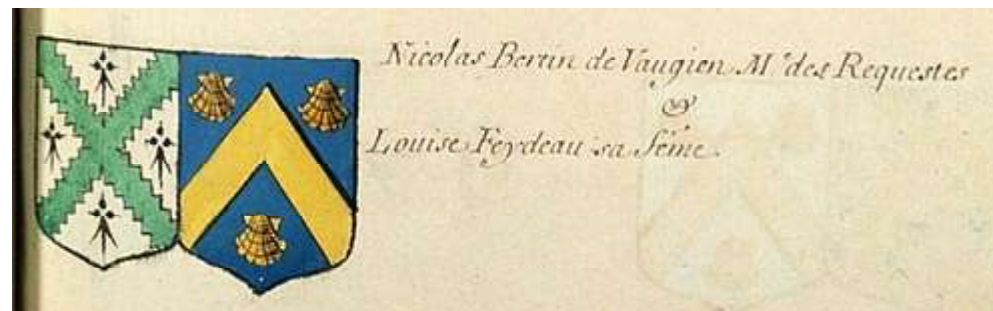 Nicolas Bertin de Vaugien M.r des Requestes
&
Louise Feydeau sa féme.